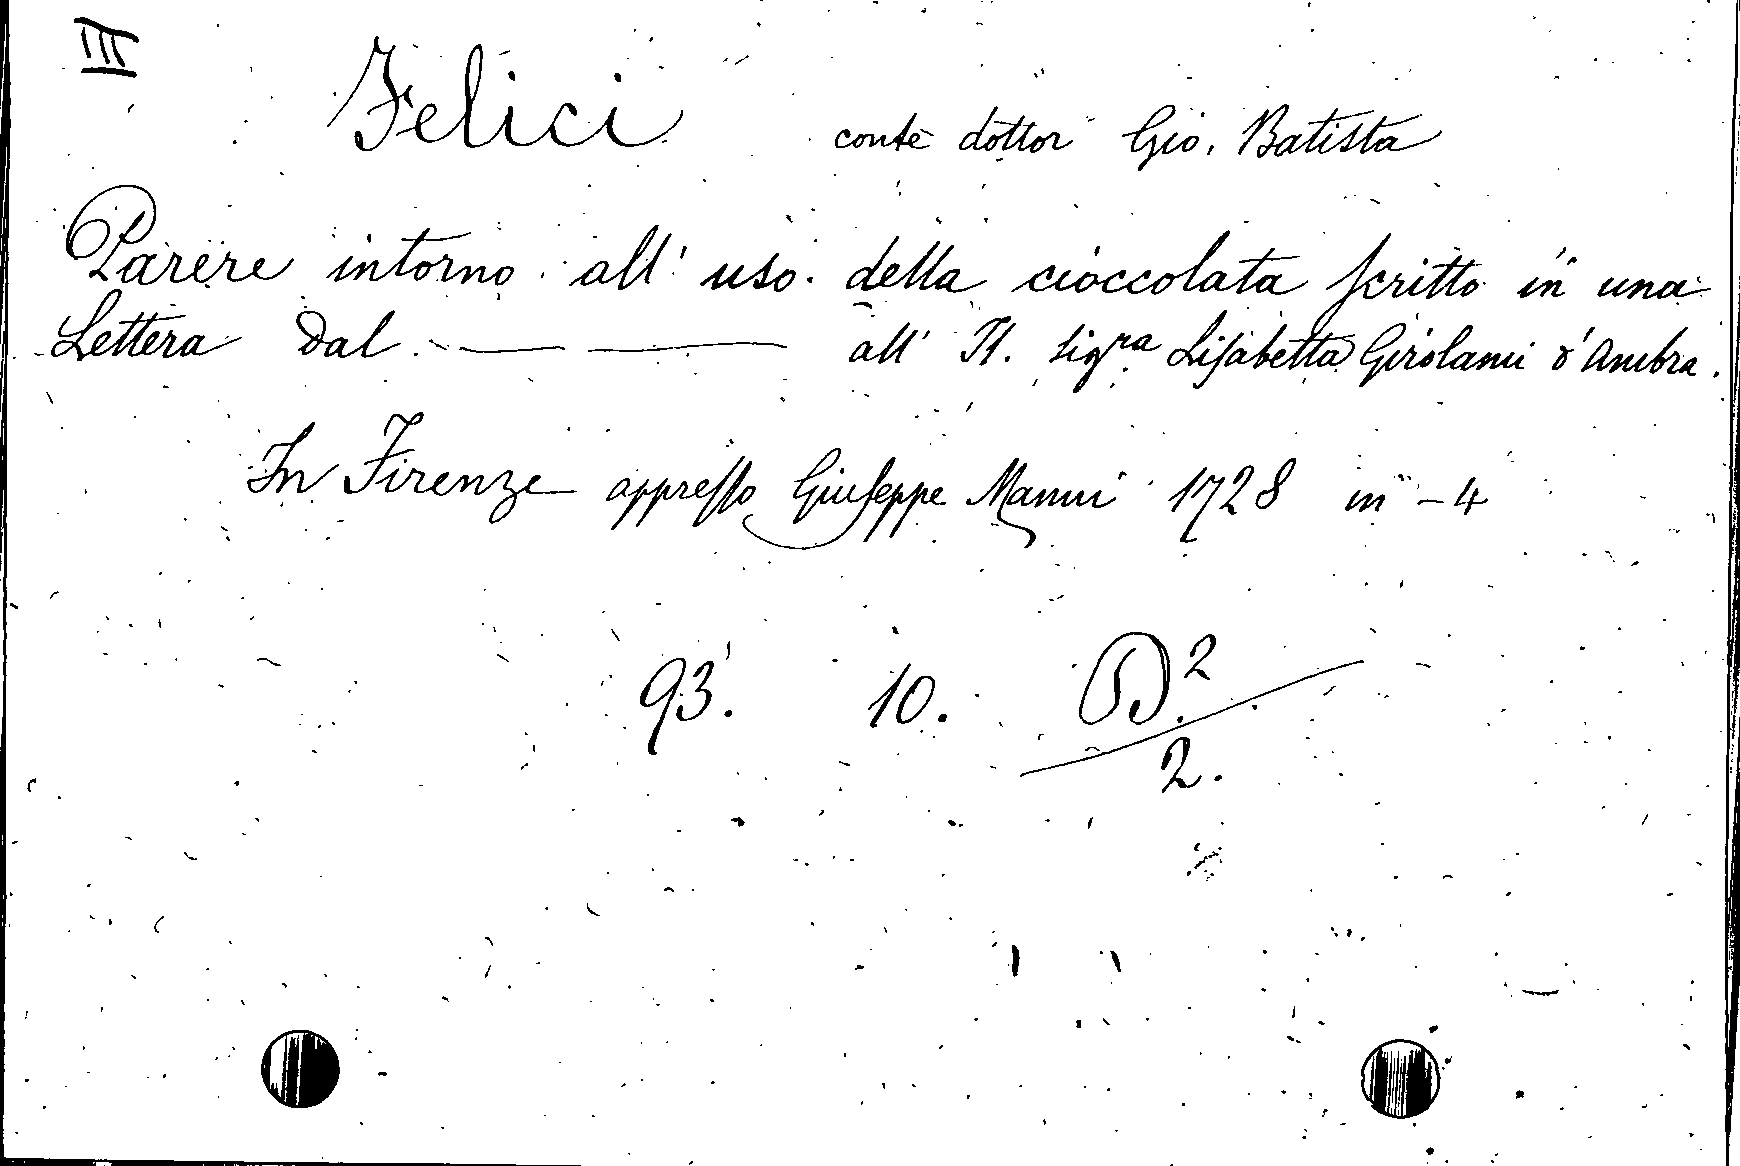 III
Felici conte dottor Gio. Batista
Parere intorno all' uso della cioccolata scritto in una
Lettera dal — — all' Il. Sigra Lisabetta Girolami d'Ambra.
In Firenze appresso Giuseppe Manni 1728 in-4
93. 10. D.2
2.